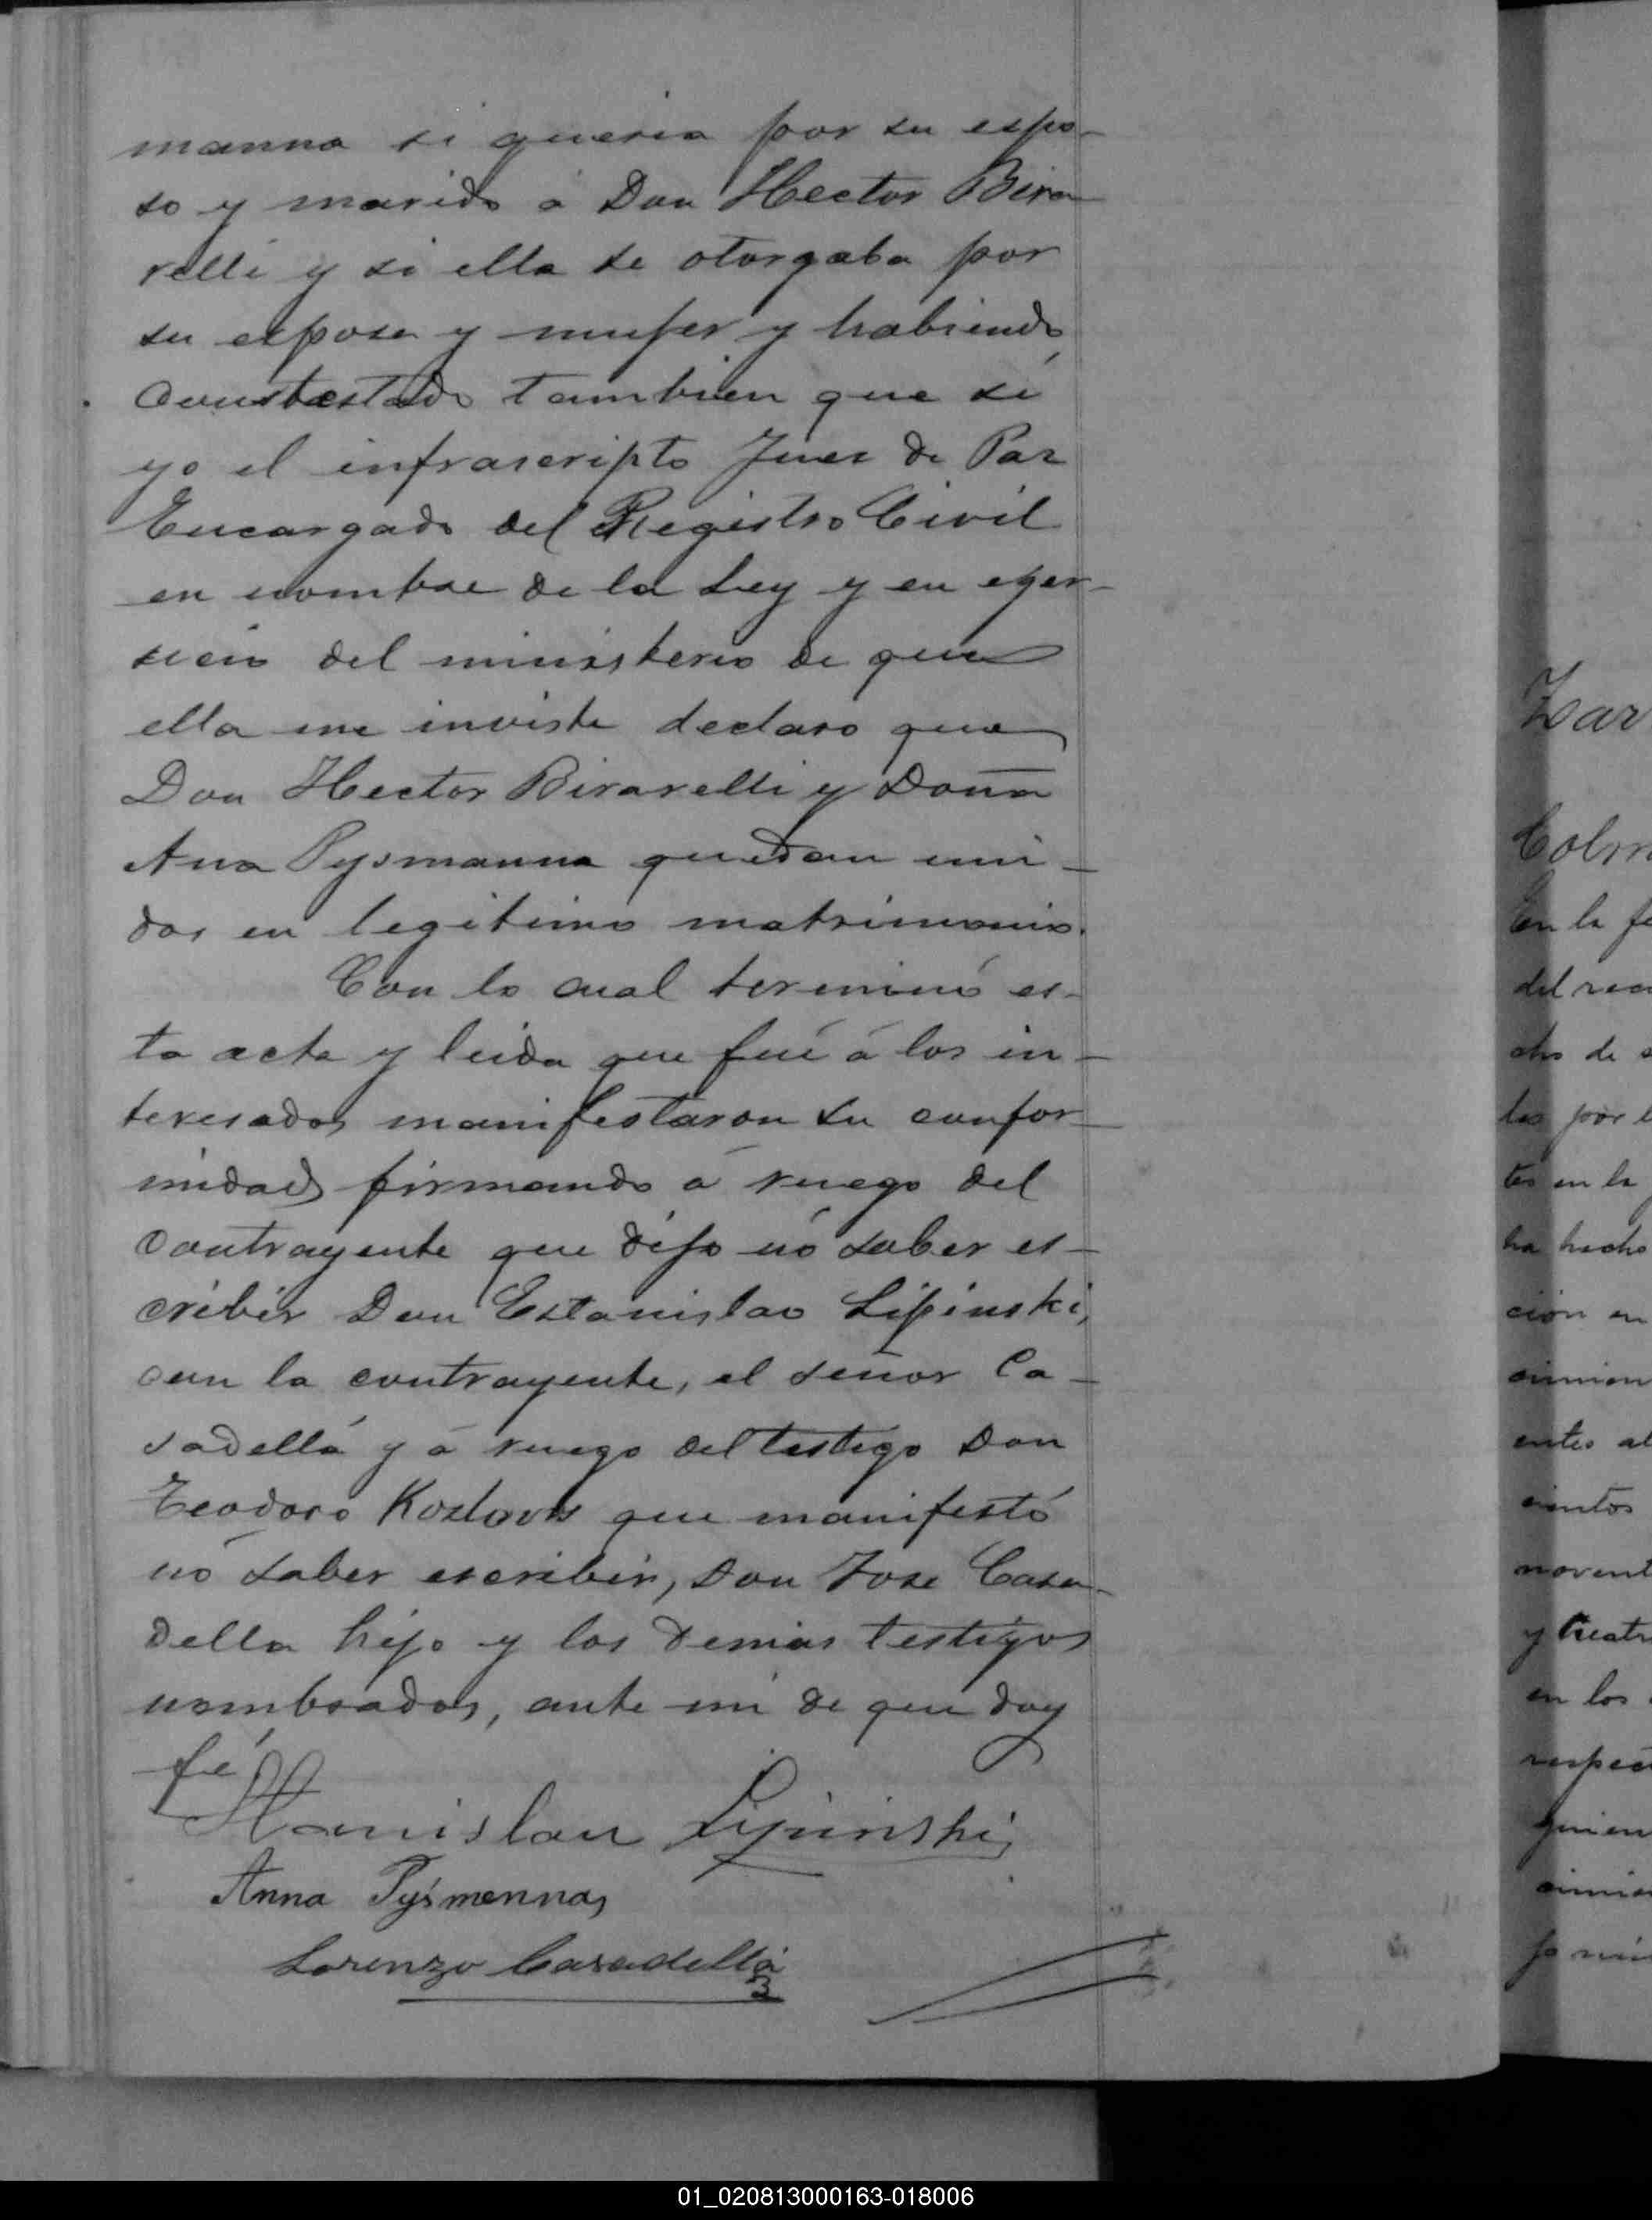 manna si queria por su espo-
so y marido á Don Hector Bira-
relli y si ella se otorgaba por
su esposa y mujer y habiendo
constestado tambien que sí
yo el infrascripto Juez de Paz
Encargado del Registro Civil
en nombre de la Ley y en ejer-
sicio del ministerio de que
ella me inviste declaro que
Don Hector Birarelli y Doña
Ana Pysmanna quedan uni-
dos en legitimo matrimonio.
Con lo cual terminó es-
ta acta y leida que fué á los in-
teresados manifestaron su confor-
midad firmando á ruego del
contrayente que dijo nó saber es-
cribir Don Estanislao Lipinski,
con la contrayente, el señor Ca-
sadellá y á ruego del testigo Don
Teodoro Kozlovs que manifestó
nó saber escribir, Don Jose Casa-
della hijo y los demas testigos
nombrados, ante mi de que doy
fé,
Stanislau Lipinski,
Anna Pyśmenna,
Lorenzo Casadellá
Zar
Colm
En la fe
del rea
cho de s
les por l
tes en la
ha hecho
ción en
entes al
cientos
novent
en los
respec
quien
01_020813000163-018006